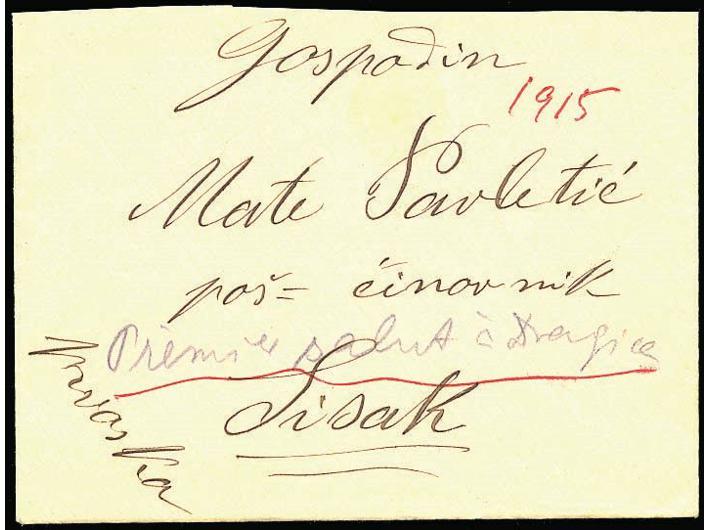 Gospodin
1915
Mate Pavletić
poš= činovnik
Premier salut à Dragica
Sisak
Hrvaska